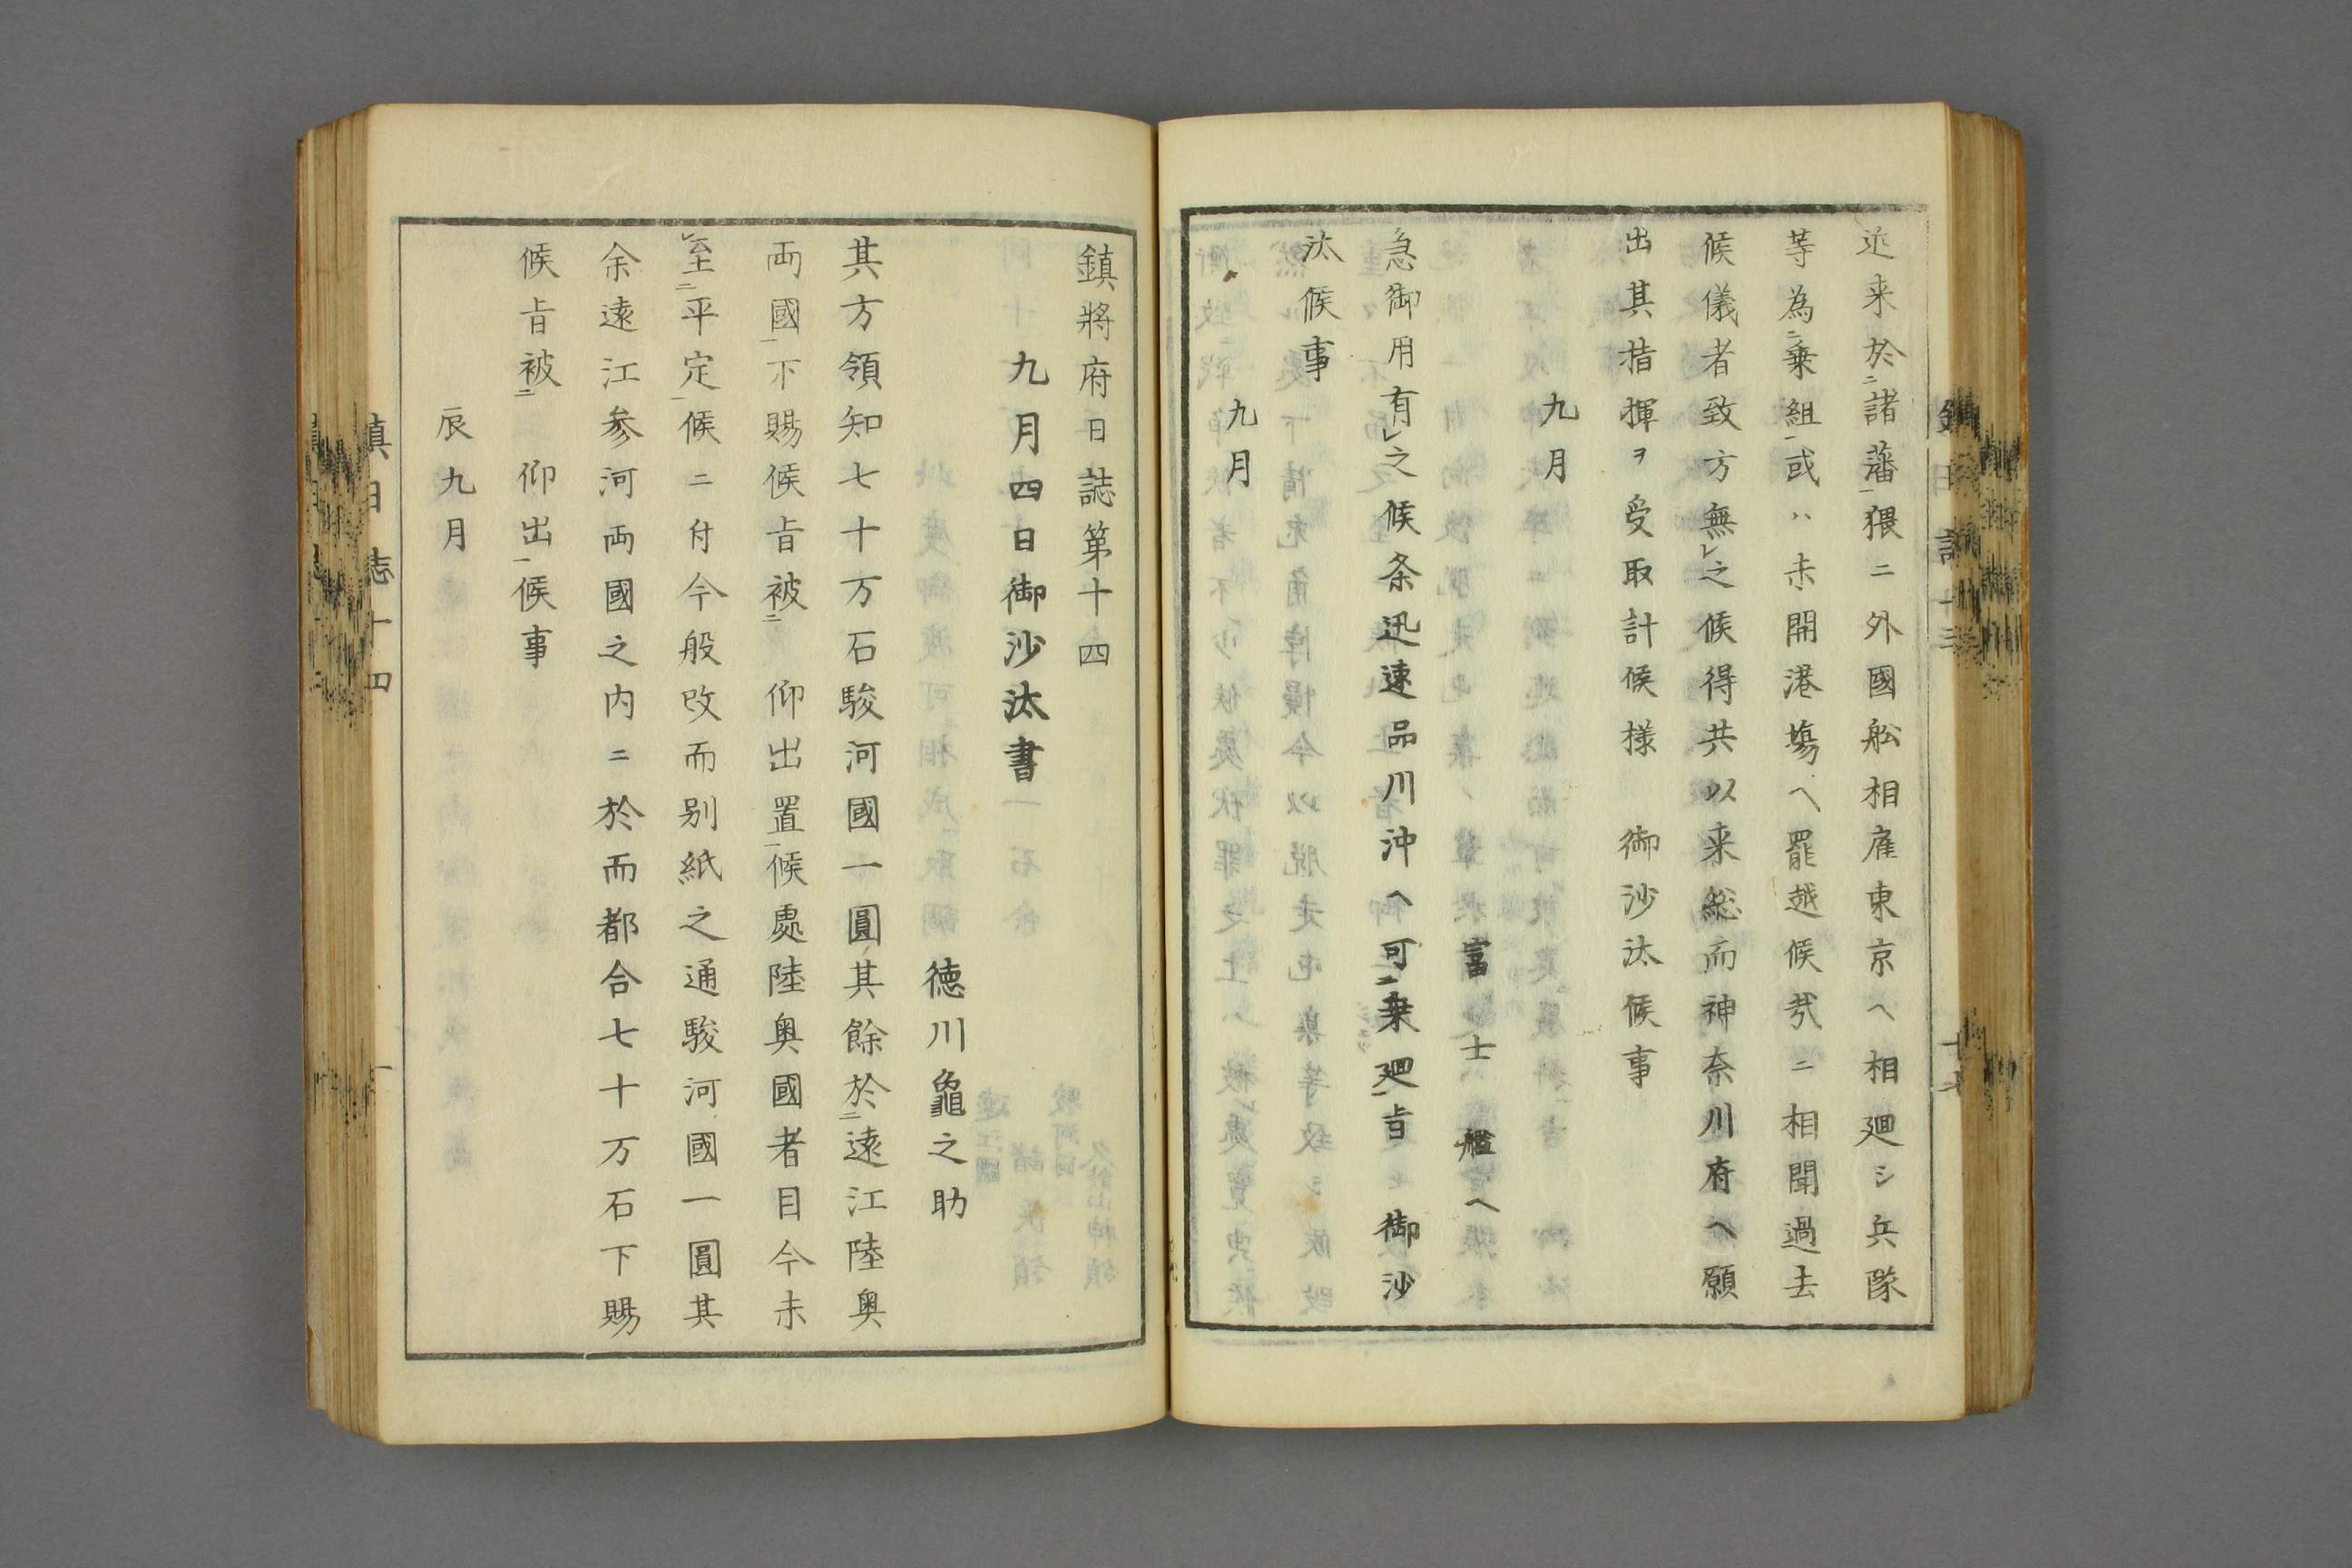 近来於二諸藩一猥ニ外國舩相雇東京ヘ相廻シ兵隊
等為二乗組一或ハ未開港塲ヘ罷越候哉ニ相聞過去
候儀者致方無レ之候得共以来総而神奈川府ヘ願
出其指揮ヲ受取計候様　御沙汰候事
九月
富士艦ヘ
急御用有レ之候条迅速品川沖ヘ可二乗廻一旨　御沙
汰候事
九月
鎮將府日誌第十四
九月四日御沙汰書
徳川龜之助
其方領知七十万石駿河國一圓其餘於二遠江陸奥
両國一下賜候旨被二　仰出置一候處陸奥國者目今未
レ至二平定一候ニ付今般改而別紙之通駿河國一圓其
余遠江参河両國之内ニ於而都合七十万石下賜
候旨被二　仰出一候事
辰九月